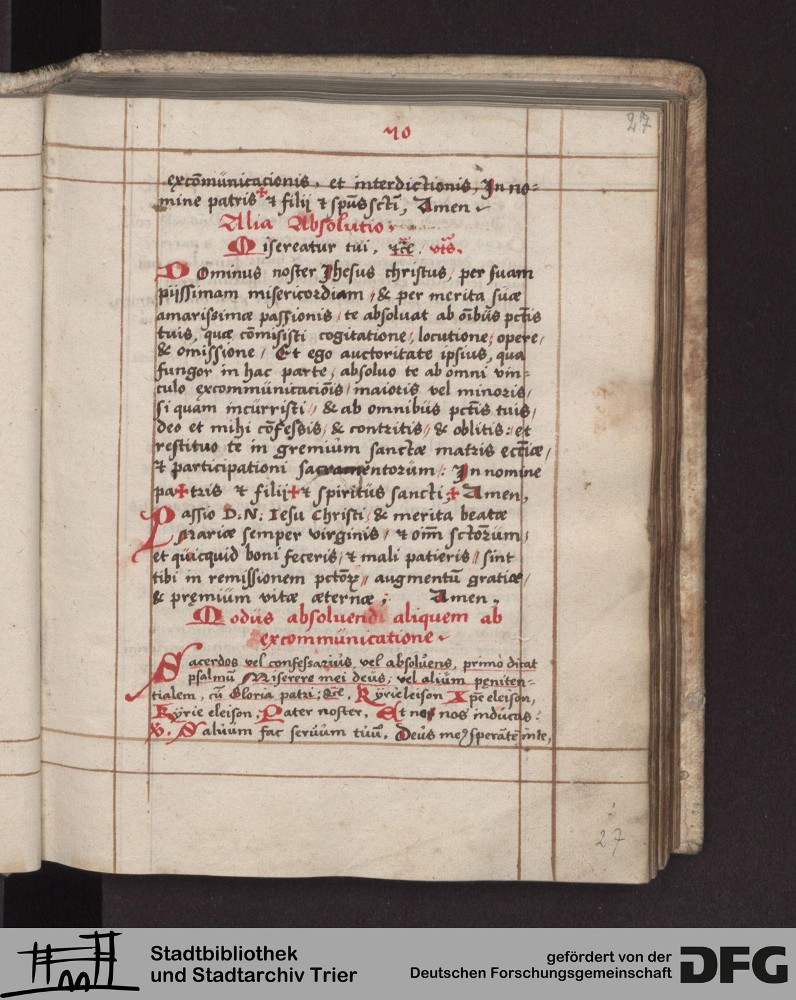 70
27
excōmunicacionis, et interdictionis, In no=
mine patris + & filij & spūs scti, Amen
Alia Absolutio.
Misereatur tui, &cē, vts.
Dominus noster Jhesus christus, per suam
pijssimam misericordiam, & per merita suæ
amarissimæ passionis, te absoluat ab oībus pctis
tuis, quæ cōmisisti cogitatione, locutione, opere,
& omissione, Et ego auctoritate ipsius, qua
fungor in hac parte, absoluo te ab omni vin=
culo excommunicaciōis, maioris vel minoris,
si quam incurristi, & ab omnibus pctis tuis,
deo et mihi cōfessis, & contritis, & oblitis: et
restituo te in gremium sanctæ matris eccliæ,
& participationi sacramentorum: In nomine
pa+tris & filij + & spiritus sancti + Amen,
Passio D. N: Iesu Christi, & merita beatæ
Mariæ semper virginis, & oīm sctorum,
et quicquid boni feceris, & mali patieris, sint
tibi in remissionem pctorꝝ, augmentū gratiæ,
& pręmium vitæ æternæ; Amen.
Modus absoluendi aliquem ab
excommunicatione
Sacerdos vel confessarius vel absoluens, primo dicat
psalmū Miserere mei deus, vel alium pęniten=
tialem, cū Gloria patri, &cē, Kyrieleison Xpē eleison,
Kyrie eleison, Pater noster, Et ne nos inducas:
V. Saluum fac seruum tuū, Deus meꝰ sperātē in te,
27
Stadtbibliothek
und Stadtarchiv Trier
gefördert von der
Deutschen Forschungsgemeinschaft
DFG